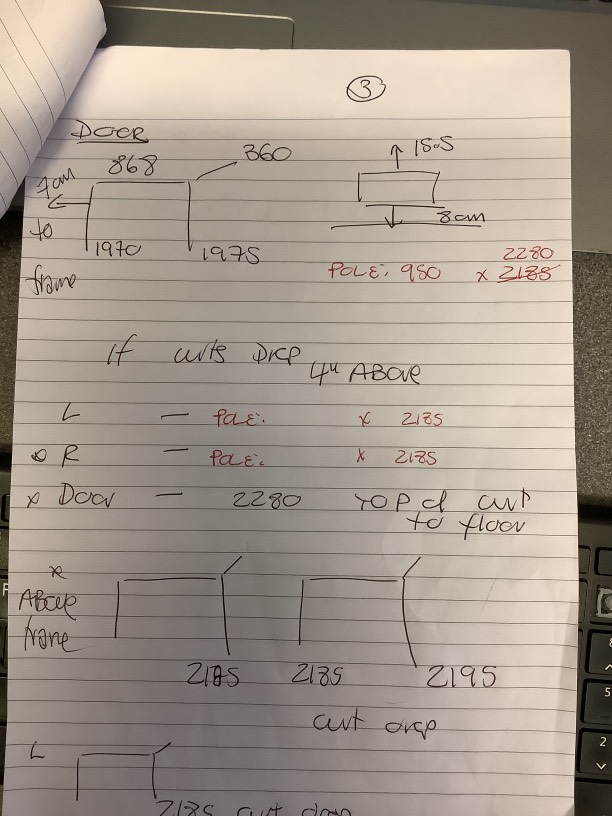 3
DOOR
868
360
7cm
to
frame
1970
1975
150S
8cm
2280
POLE: 980 x 2185
If curts Drop 4" ABOVE
L — POLE: x 2185
R — POLE: x 2185
x Door — 2280 TOP of curt
to floor
x
Above
frame
2185
2185
2195
curt drop
L
2185 curt drop